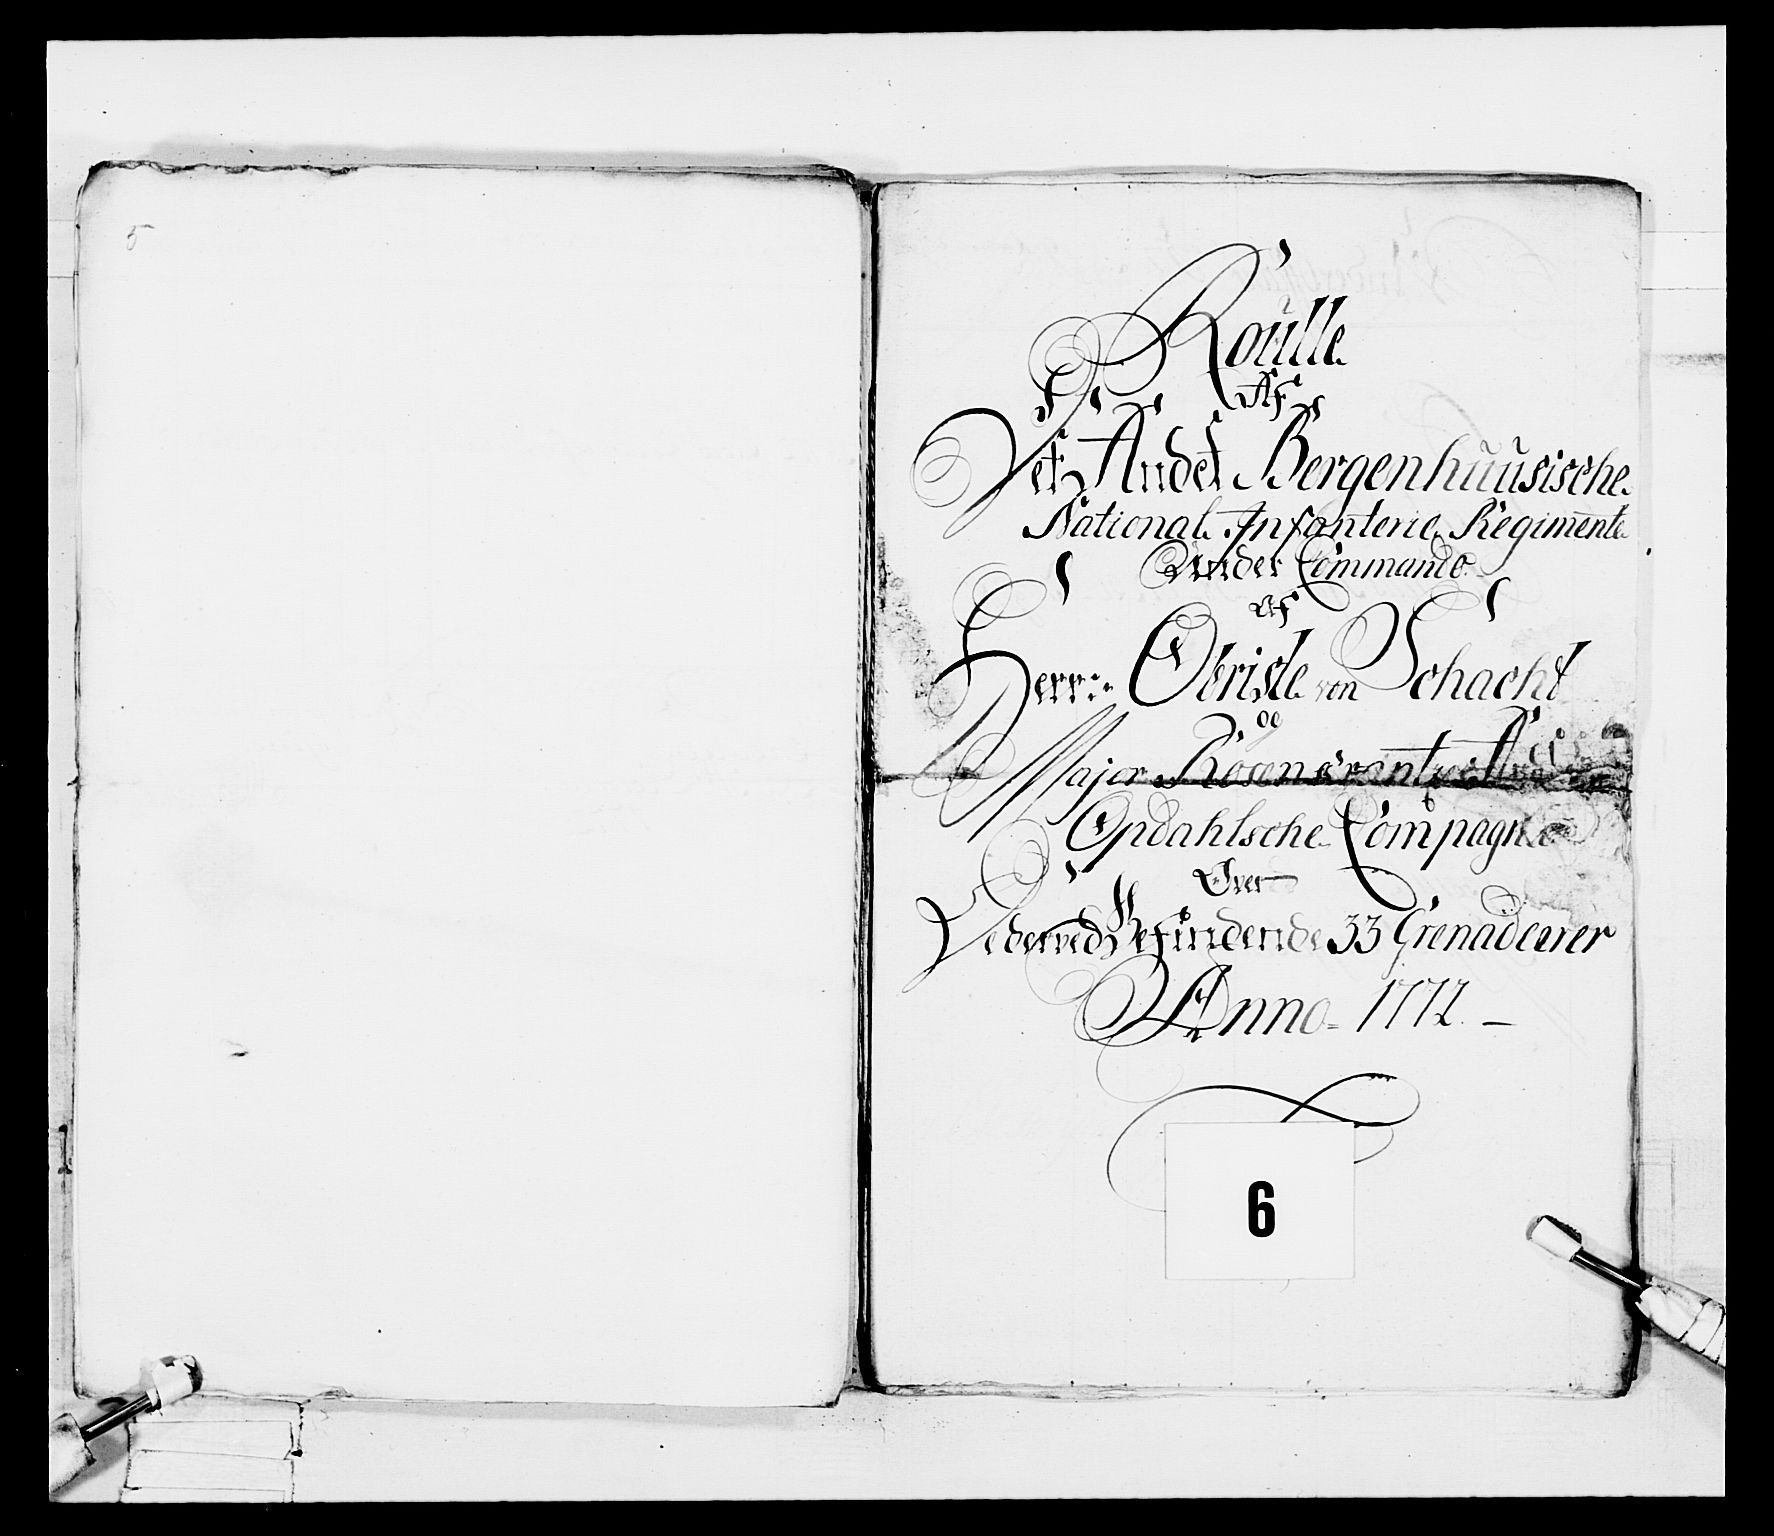 5
Roulle
Af
Det Andet Bergenhuusische
National Infanterie Regimente
Under Commando
Af
Herr:- Obriste von Schacht
og
Major Rosencrantz
Opdahlsche Compagnie
Over
Vederved Befindende 33 Grenadeerer
Anno = 1772. –
6